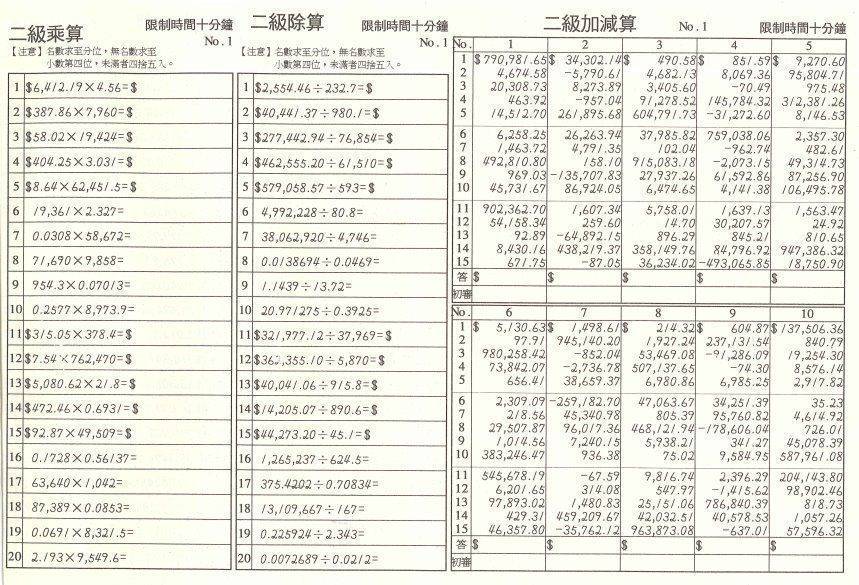 二級乘算
限制時間十分鐘
No.1
【注意】名數求至分位，無名數求至
小數第四位，未滿者四捨五入。
1 $6,412.19×4.56=$
2 $387.86×7,960=$
3 $58.02×19,424=$
4 $404.25×3.031=$
5 $8.64×62,451.5=$
6 19,361×2.327=
7 0.0308×58,672=
8 71,690×9,858=
9 954.3×0.07013=
10 0.2577×8,973.9=
11 $315.05×378.4=$
12 $7.54×762,470=$
13 $5,080.62×21.8=$
14 $472.46×0.6931=$
15 $92.87×49,509=$
16 0.1728×0.56137=
17 63,640×1,042=
18 87,389×0.0853=
19 0.0691×8,321.5=
20 2.193×9,549.6=
二級除算
限制時間十分鐘
No.1
【注意】名數求至分位，無名數求至
小數第四位，未滿者四捨五入。
1 $2,554.46÷232.7=$
2 $40,441.37÷980.1=$
3 $277,442.94÷76,854=$
4 $462,555.20÷61,510=$
5 $579,058.57÷593=$
6 4,992,228÷80.8=
7 38,062,920÷4,746=
8 0.0138694÷0.0469=
9 1.1439÷13.72=
10 20.971275÷0.3925=
11 $321,977.12÷37,969=$
12 $362,355.10÷5,870=$
13 $40,041.06÷915.8=$
14 $14,205.07÷890.6=$
15 $44,273.20÷45.1=$
16 1,265,237÷624.5=
17 375.4202÷0.70834=
18 13,109,667÷167=
19 0.225924÷2.343=
20 0.0072689÷0.0212=
二級加減算
No.1
限制時間十分鐘
No. 1 2 3 4 5
1 $790,981.65 $ 34,302.14 $ 490.58 $ 851.59 $ 9,270.60
2 4,674.58 -5,790.61 4,682.13 8,069.36 95,804.71
3 20,308.73 8,273.89 3,405.60 -70.49 975.48
4 463.92 -957.04 91,278.52 145,784.32 312,381.26
5 14,512.70 261,895.68 604,791.73 -31,272.60 8,146.53
6 6,258.25 26,263.94 37,985.82 759,038.06 2,357.30
7 1,463.72 4,791.35 102.04 -962.74 482.61
8 492,810.80 158.10 915,083.18 -2,073.15 49,314.73
9 969.03 -135,707.83 27,937.26 61,592.86 87,256.90
10 45,731.67 86,924.05 6,474.65 4,141.38 106,495.78
11 902,362.70 1,607.34 5,758.01 1,639.13 1,563.47
12 54,158.34 259.60 14.70 30,207.57 24.92
13 92.89 -64,892.15 896.29 845.21 810.65
14 8,430.16 438,219.37 358,149.76 84,796.92 947,386.32
15 671.75 -87.05 36,234.02 -493,065.85 18,750.90
答 $ $ $ $ $
初審
No. 6 7 8 9 10
1 $ 5,130.63 $ 1,498.61 $ 214.32 $ 604.87 $137,506.36
2 97.91 945,140.20 1,927.24 237,131.54 840.79
3 980,258.42 -852.04 53,469.08 -91,286.09 19,254.30
4 73,842.07 -2,736.78 507,137.65 -74.30 8,576.14
5 656.41 38,659.37 6,980.86 6,985.25 2,917.82
6 2,309.09 -259,182.70 47,063.67 34,251.39 35.23
7 218.56 45,340.98 805.39 95,760.82 4,614.92
8 29,507.87 96,017.36 468,121.94 -178,606.04 726.01
9 1,014.56 7,240.15 5,938.21 341.27 45,078.39
10 383,246.47 936.38 75.02 9,584.95 587,961.08
11 545,678.19 -67.59 9,816.74 2,396.29 204,143.80
12 6,201.65 314.08 547.97 -1,415.62 98,902.46
13 97,893.02 1,480.83 25,151.06 786,840.39 818.73
14 429.31 459,209.67 42,032.51 40,578.53 1,057.26
15 46,357.80 -35,762.12 963,873.08 -637.01 57,596.32
答 $ $ $ $ $
初審